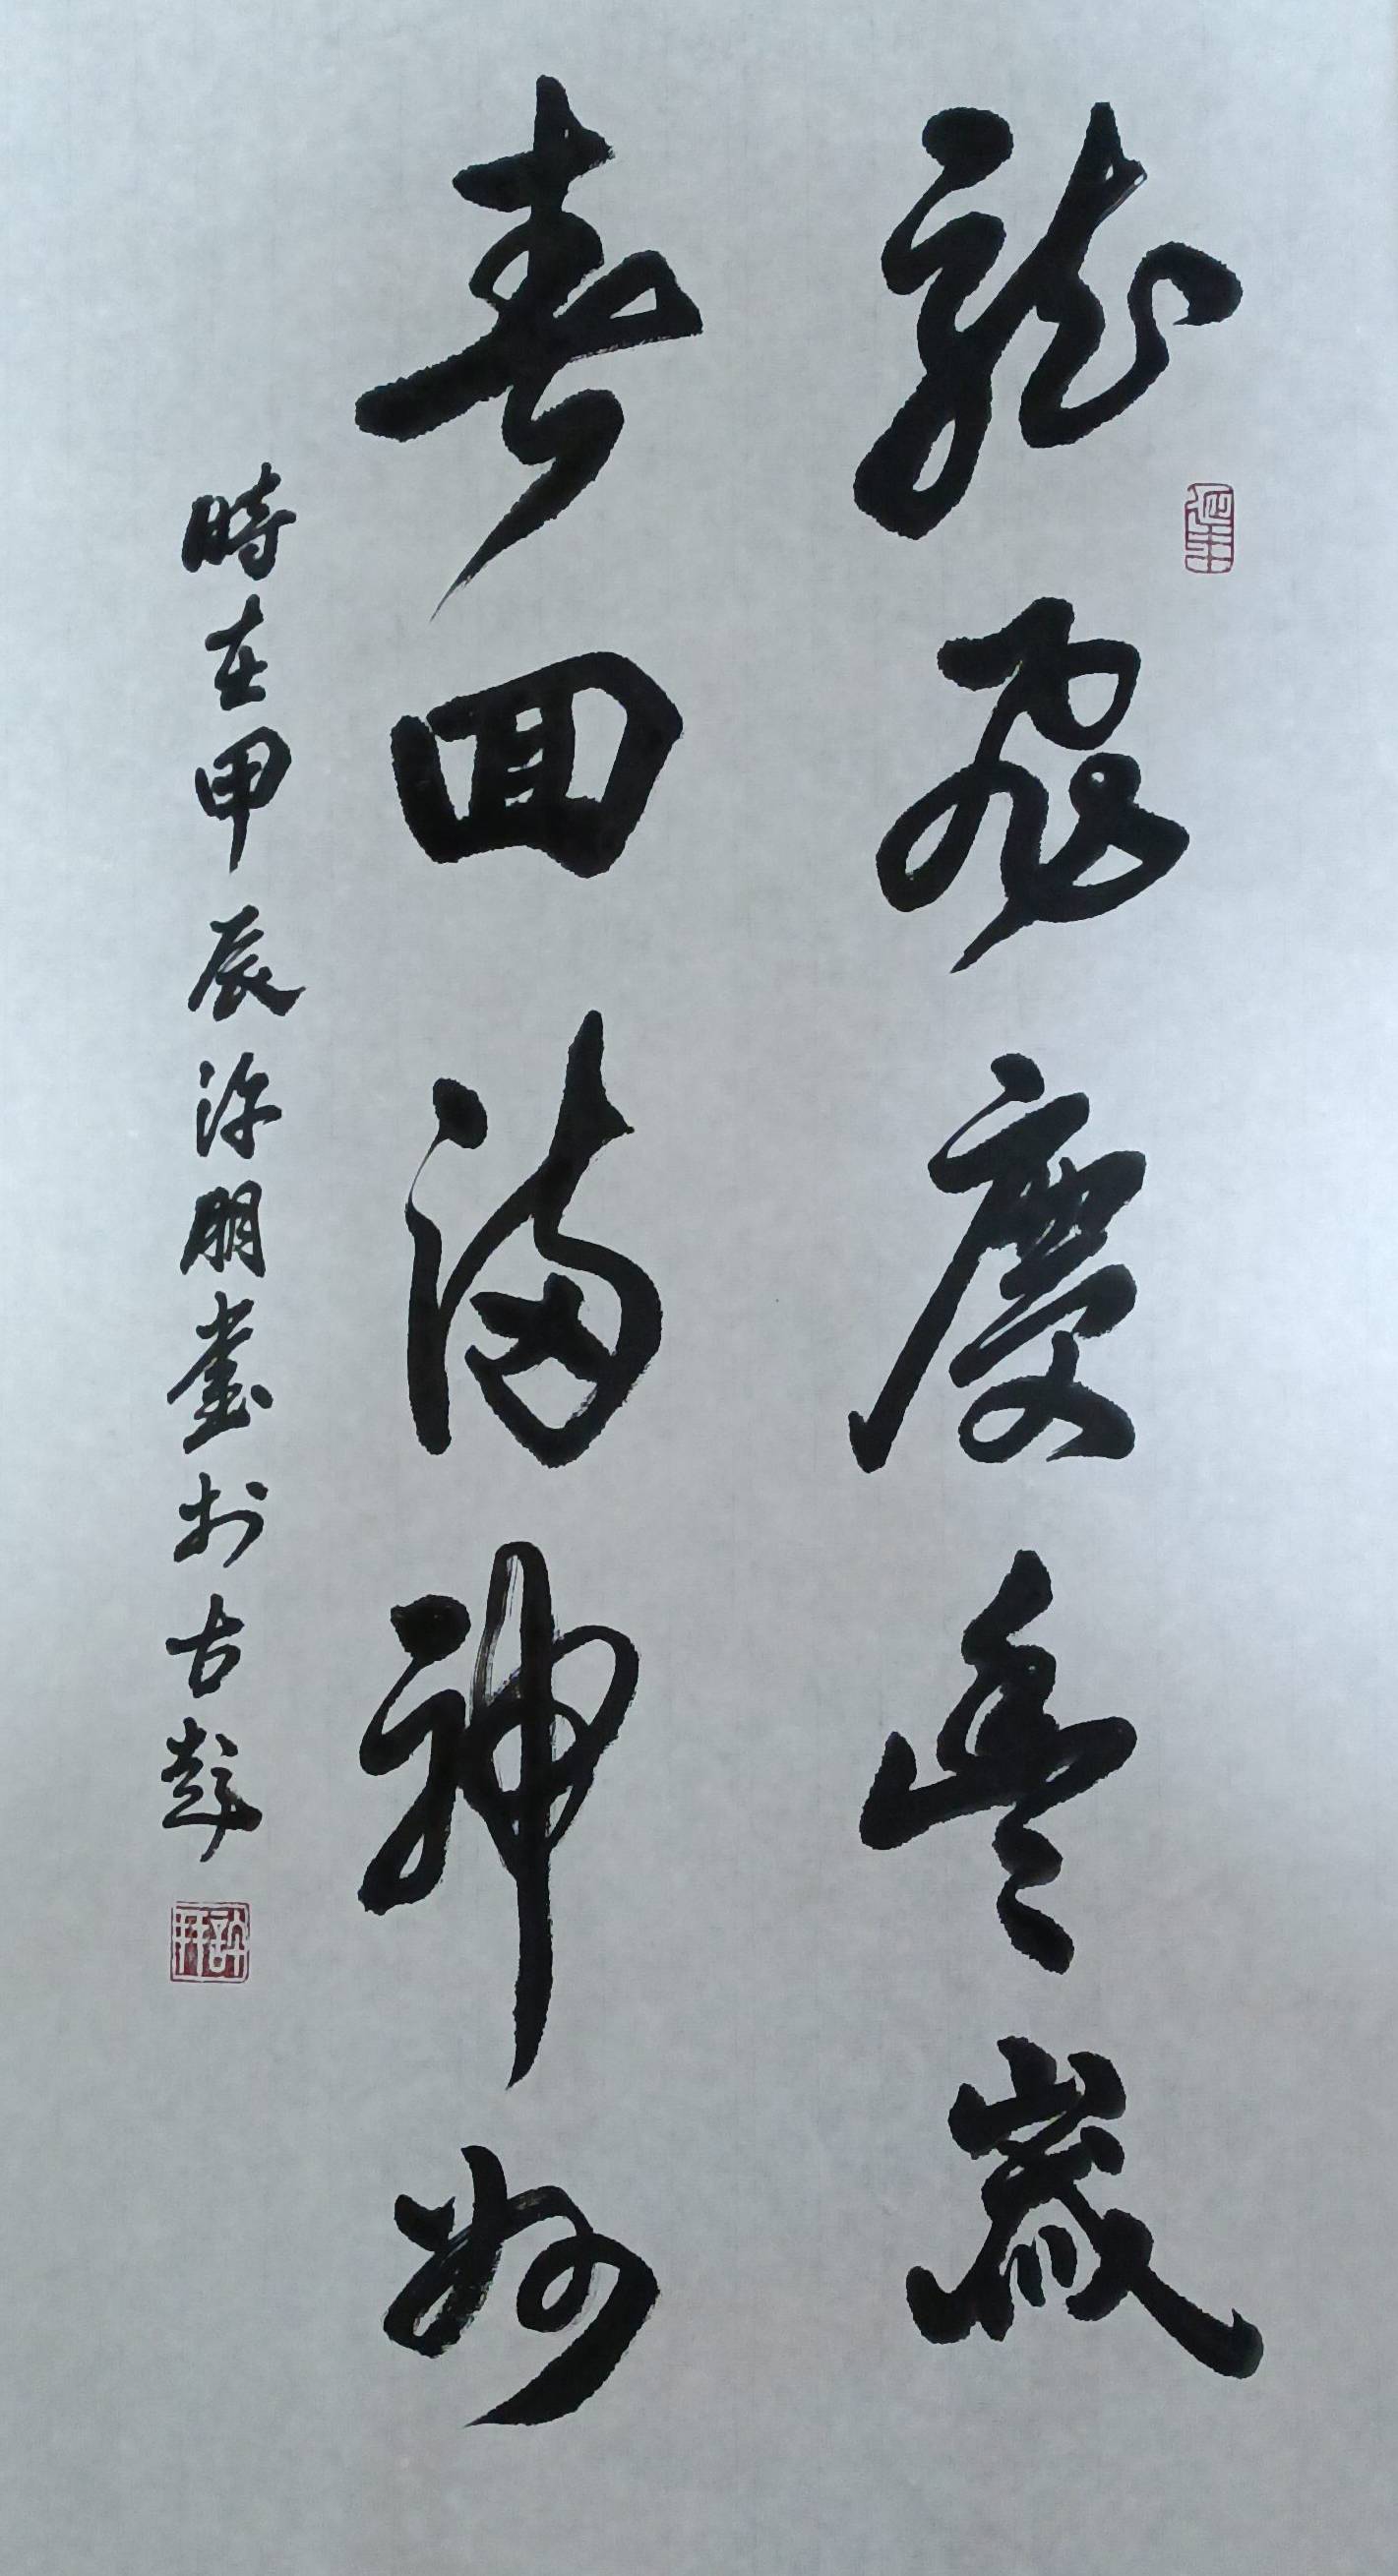 龍飛慶豐歲
春回滿神州
時在甲辰許朋書於古彭